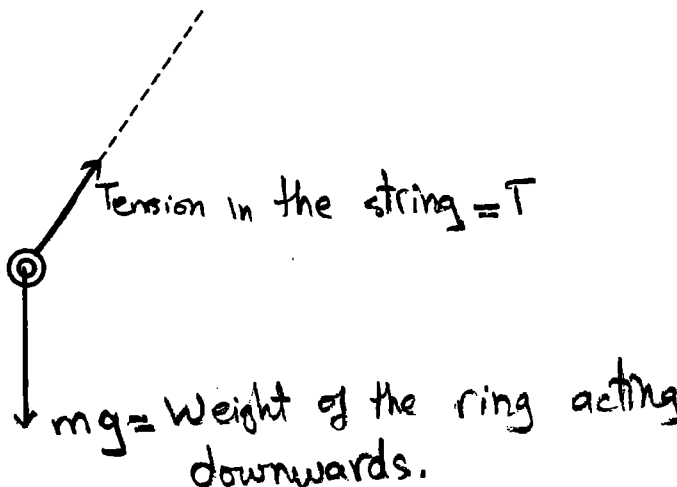 Tension in the string = T
mg = Weight of the ring acting
downwards.